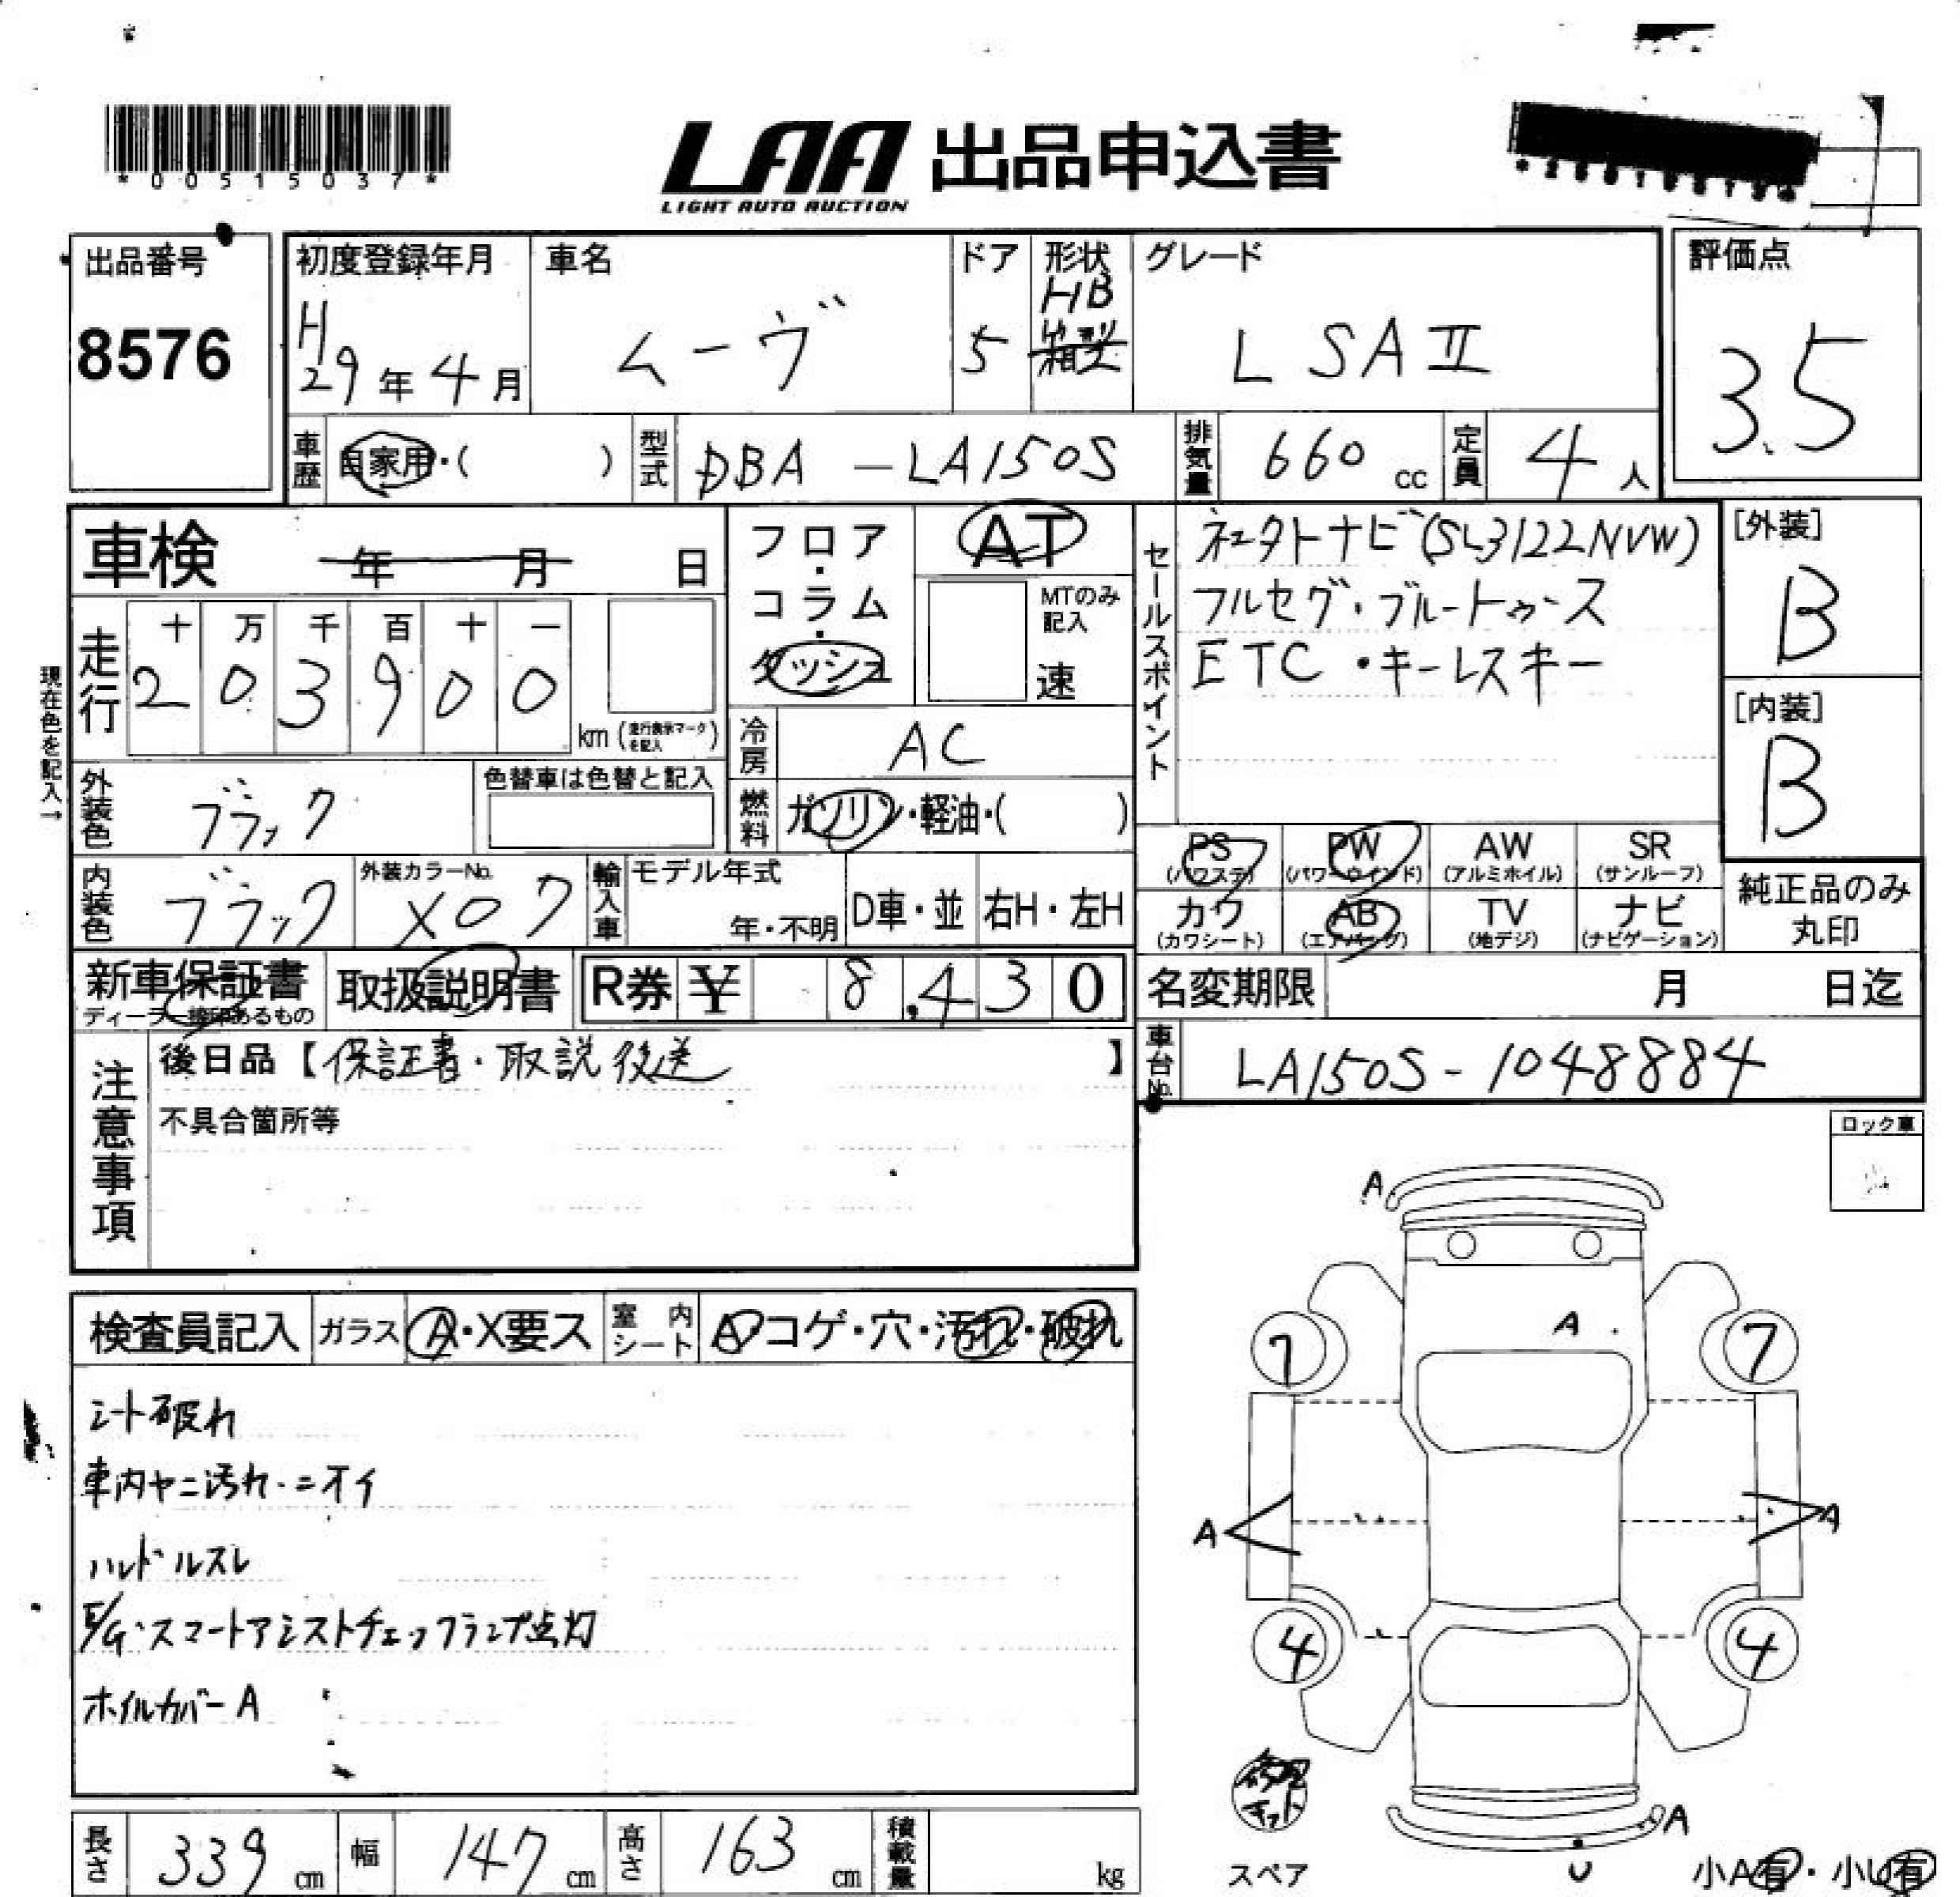 *00515037*
LAA 出品申込書
LIGHT AUTO AUCTION
出品番号
8576
初度登録年月
H
29年4月
車名
ムーヴ
ドア
5
形状
HB
箱型
グレード
L SAⅡ
評価点
3.5
車歴
自家用・( )
型式
DBA-LA150S
排気量
660 cc
定員
4人
車検 年 月 日
フロア・コラム・ダッシュ
AT
MTのみ記入
速
セールスポイント
ネェタトナビ(SL3122NVW)
フルセグ・ブルートゥース
ETC・キーレスキー
[外装]
B
[内装]
B
現在色を記入→
走行
十 万 千 百 十 一
2 0 3 9 0 0
km (走行表示マークを記入)
冷房
AC
外装色
ブラック
色替車は色替と記入
燃料
ガソリン・軽油・( )
内装色
ブラック
外装カラーNo.
X07
輸入車
モデル年式
年・不明
D車・並
右H・左H
PS (パワステ)
PW (パワーウインド)
AW (アルミホイル)
SR (サンルーフ)
カワ (カワシート)
AB (エアバッグ)
TV (地デジ)
ナビ (ナビゲーション)
純正品のみ丸印
新車保証書
ディーラー捺印あるもの
取扱説明書
R券 ¥ 8,430
名変期限 月 日迄
車台No.
LA150S-1048884
注意事項
後日品【保証書・取説後送】
不具合箇所等
ロック車
検査員記入
ガラス
A・X要ス
室内シート
A・コゲ・穴・汚れ・破れ
シート破れ
車内ヤニ汚れ・ニオイ
ハンドルスレ
E/G・スマートアシストチェックランプ点灯
ホイルカバーA
A
A
7
7
A
A
4
4
修理キット
スペア
A
U
小A有・小U有
長さ
339 cm
幅
147 cm
高さ
163 cm
積載量
kg